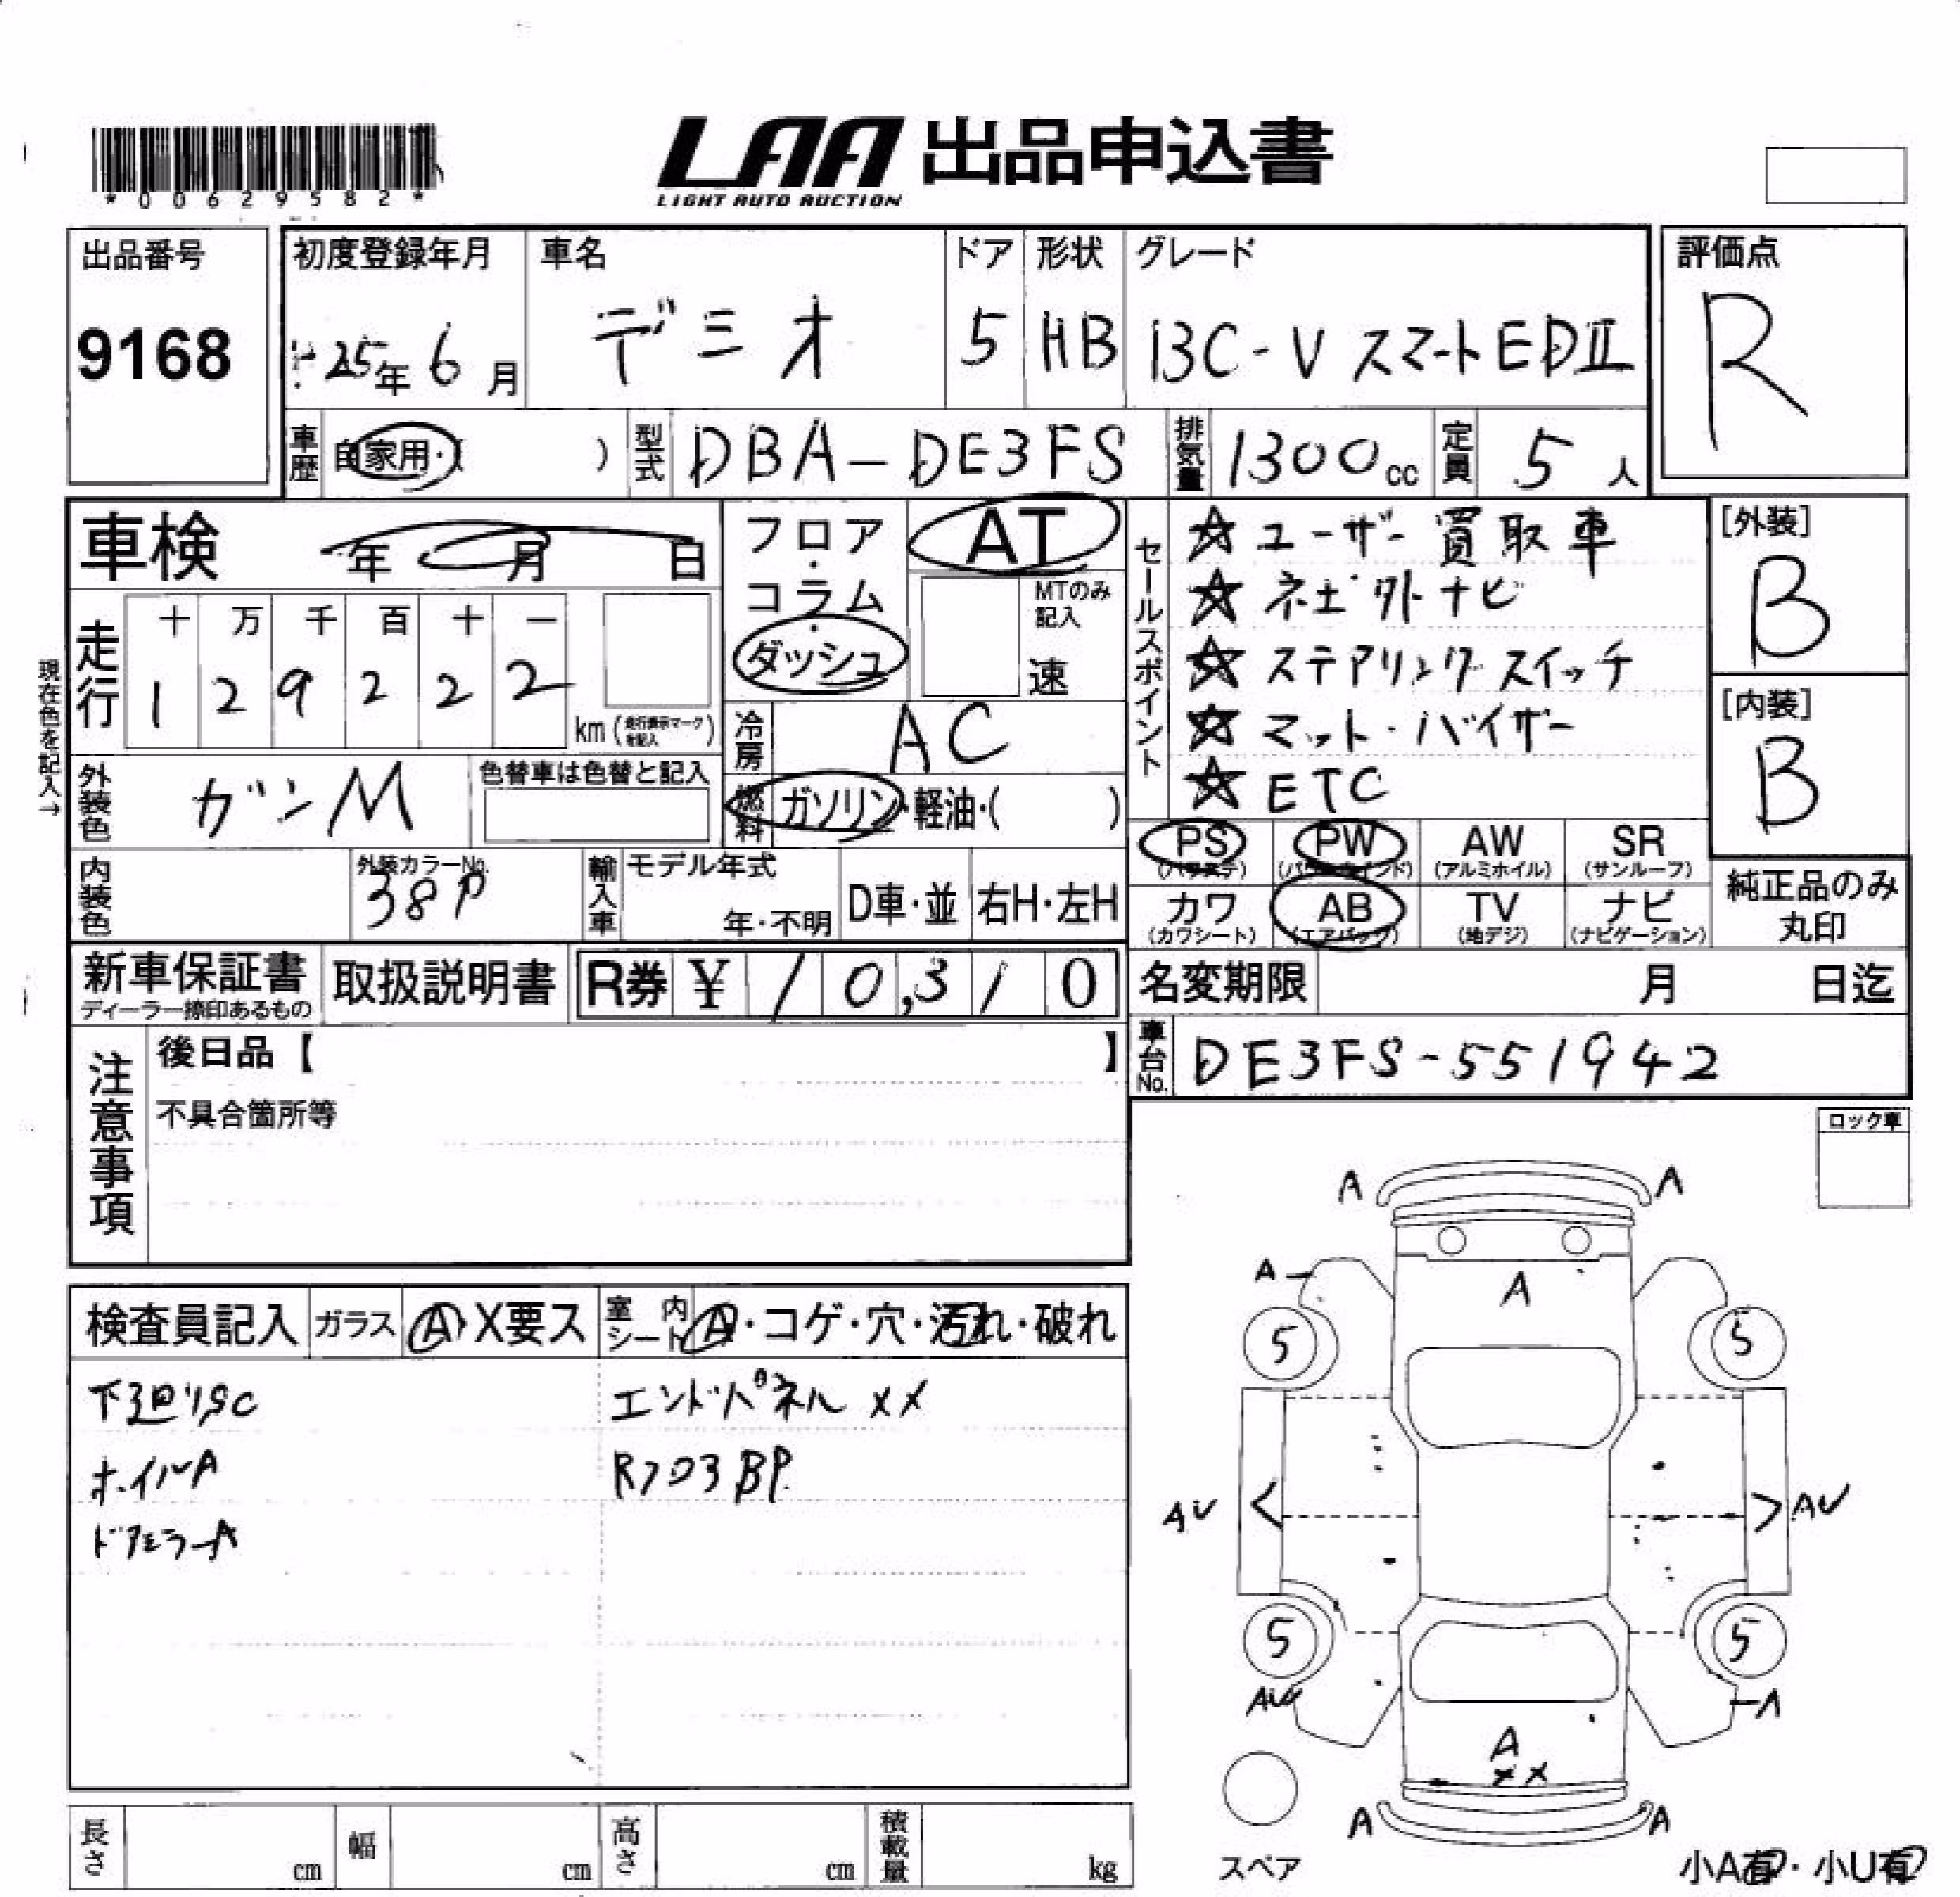 *00629582*
LAA 出品申込書
LIGHT AUTO AUCTION
出品番号
9168
初度登録年月
25年 6月
車名
デミオ
ドア
5
形状
HB
グレード
13C-V スマートEDⅡ
評価点
R
車歴 自家用・( )
型式 DBA-DE3FS
排気量 1300cc
定員 5人
車検 年 月 日
フロア・コラム・ダッシュ
AT
MTのみ記入
速
セールスポイント
☆ユーザー買取車
☆ネビ外ナビ
☆ステアリングスイッチ
☆マット・バイザー
☆ETC
[外装]
B
[内装]
B
現在色を記入→
走行
十 万 千 百 十 一
1 2 9 2 2 2
km (走行表示マークを記入)
冷房 AC
外装色 ガンM
色替車は色替と記入
燃料 ガソリン・軽油・( )
PS (パワステ)
PW (パワーウインド)
AW (アルミホイル)
SR (サンルーフ)
カワ (カワシート)
AB (エアバッグ)
TV (地デジ)
ナビ (ナビゲーション)
純正品のみ丸印
内装色
外装カラーNo.
38P
輸入車
モデル年式
年・不明
D車・並
右H・左H
新車保証書
ディーラー捺印あるもの
取扱説明書
R券 ¥ 10,310
名変期限 月 日迄
車台No. DE3FS-551942
注意事項
後日品【 】
不具合箇所等
ロック車
検査員記入
ガラス A・X要ス
室内シート A・コゲ・穴・汚れ・破れ
下廻りSC
エンドパネル XX
ホイルA
RフロアBP
ドアミラーA
A A
A
A
5 5
AU < > AU
5 5
AU A
A
XX
A A
スペア
小A有・小U有
長さ cm
幅 cm
高さ cm
積載量 kg